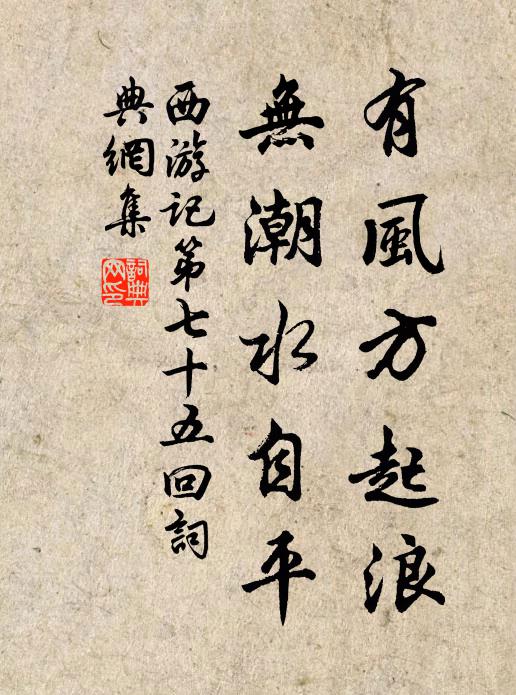 有風方起浪
無潮水自平
西游记第七十五回詞
典網集
詞典網印